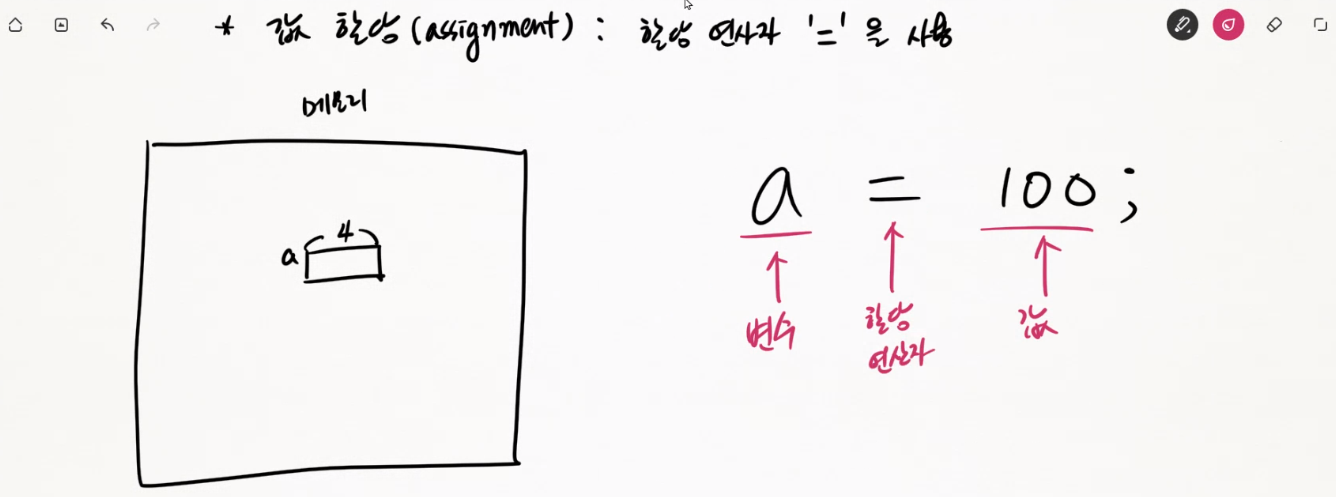 * 값 할당(assignment) : 할당 연산자 '=' 을 사용
메모리
4
a
a = 100;
변수
할당
연산자
값